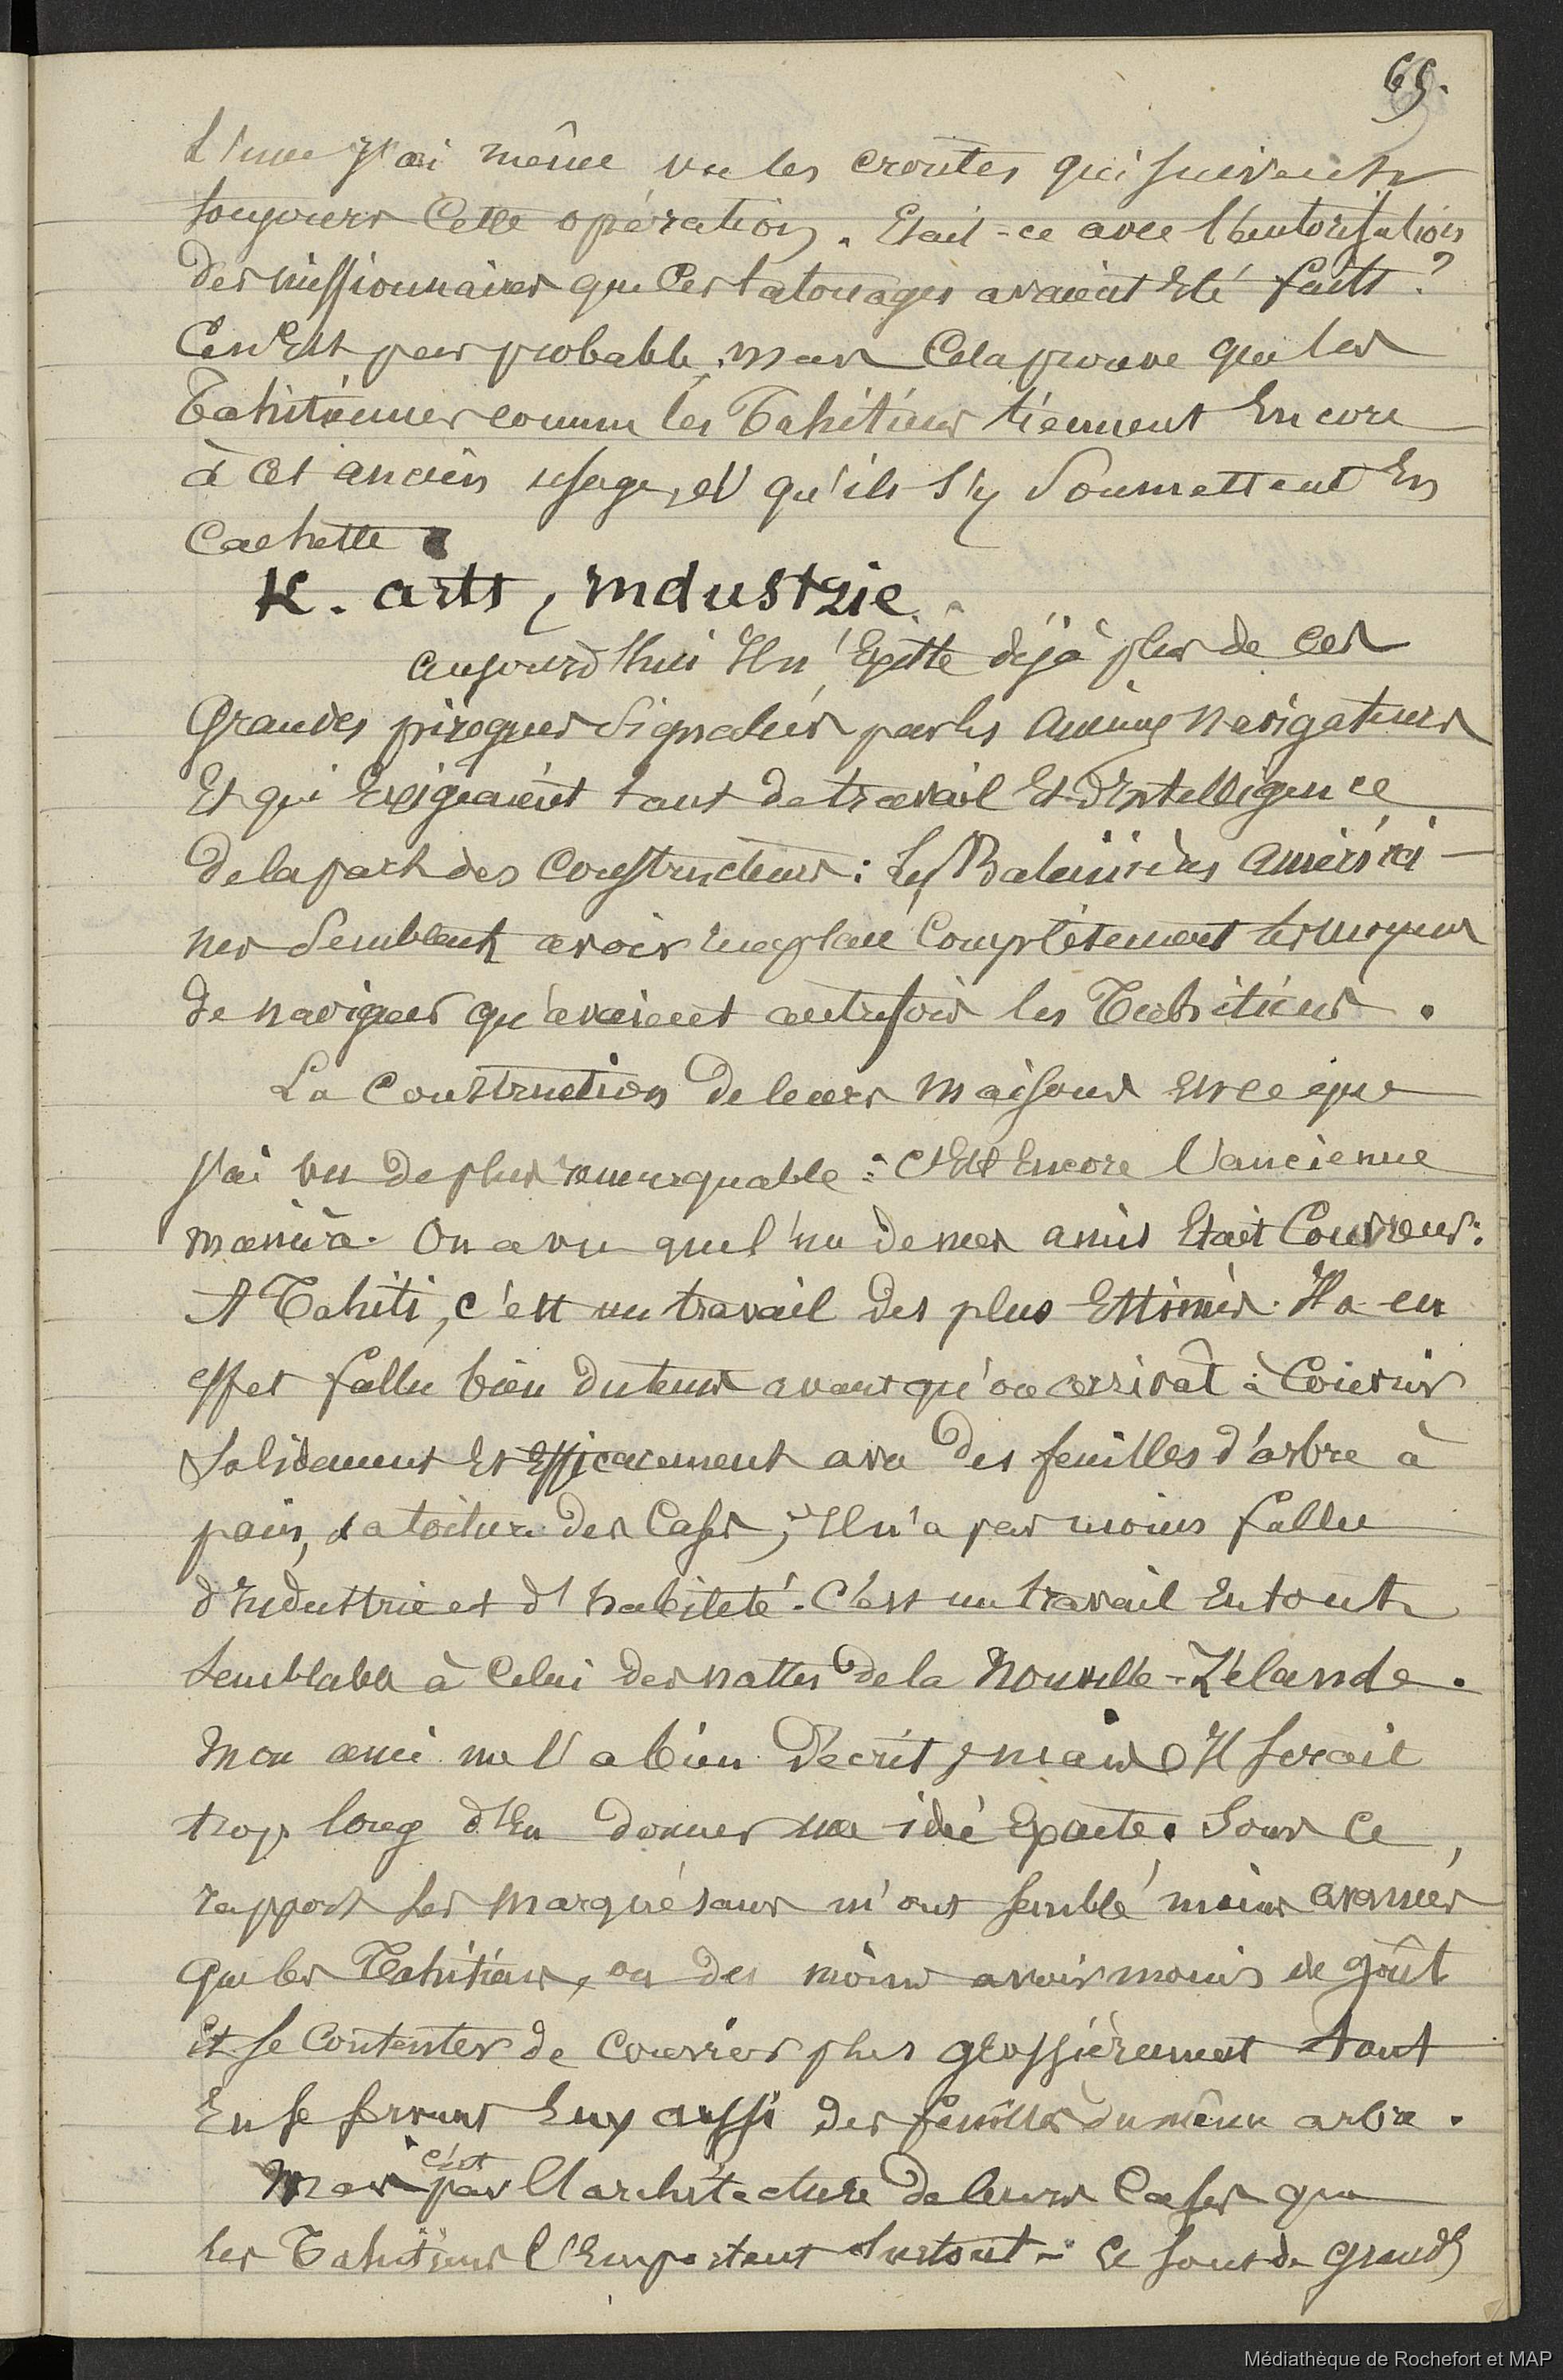 69.
L'une j'ai même vu les croutes qui suivent
toujours cette opération. Etait-ce avec l'autorisation
des missionnaires que ces tatouages avaient été faits ?
Ce n'est pas probable, mais cela prouve que les
Tahitiennes comme les Tahitiens tiennent encore
à cet ancien usage, et qu'ils s'y soumettent en
cachette.
K. arts, industrie.
aujourd'hui il n'existe déjà plus de ces
grandes pirogues signalées par les anciens navigateurs
et qui exigeaient tant de travail et d'intelligence
de la part des constructeurs : Les Baleinières américai-
nes semblent avoir remplacé complètement les moyens
de naviguer qu'avaient autrefois les Tahitiens.
La construction de leurs maisons est ce que
j'ai vu de plus remarquable : c'est encore l'ancienne
manière. On a vu que l'un de mes amis était couvreur :
A Tahiti, c'est un travail des plus estimés. Il a en
effet fallu bien du tems avant qu'on arrivât à couvrir
solidement et efficacement avec des feuilles d'arbre à
pain, la toiture des cases ; il n'a pas moins fallu
d'industrie et d'habileté. C'est un travail en tout
semblable à celui des nattes de la Nouvelle-Zélande.
Mon ami me l'a bien décrit, mais il serait
trop long d'en donner une idée exacte. Sous ce
rapport les Marquésans m'ont semblé moins avancés
que les Tahitiens, ou du moins avoir moins de goût
et se contenter de couvrir plus grossièrement tout
en se servant eux aussi des feuilles du même arbre.
Mais c'est par l'architecture de leurs cases que
les Tahitiens l'emportent surtout - ce sont de grands
Médiathèque de Rochefort et MAP